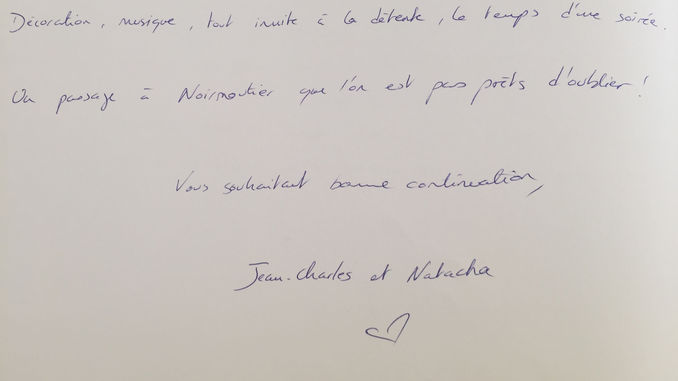 Décoration, musique, tout invite à la détente, le temps d'une soirée.
Un passage à Noirmoutier que l'on est pas prêts d'oublier !
Vous souhaitant bonne continuation,
Jean-Charles et Natacha